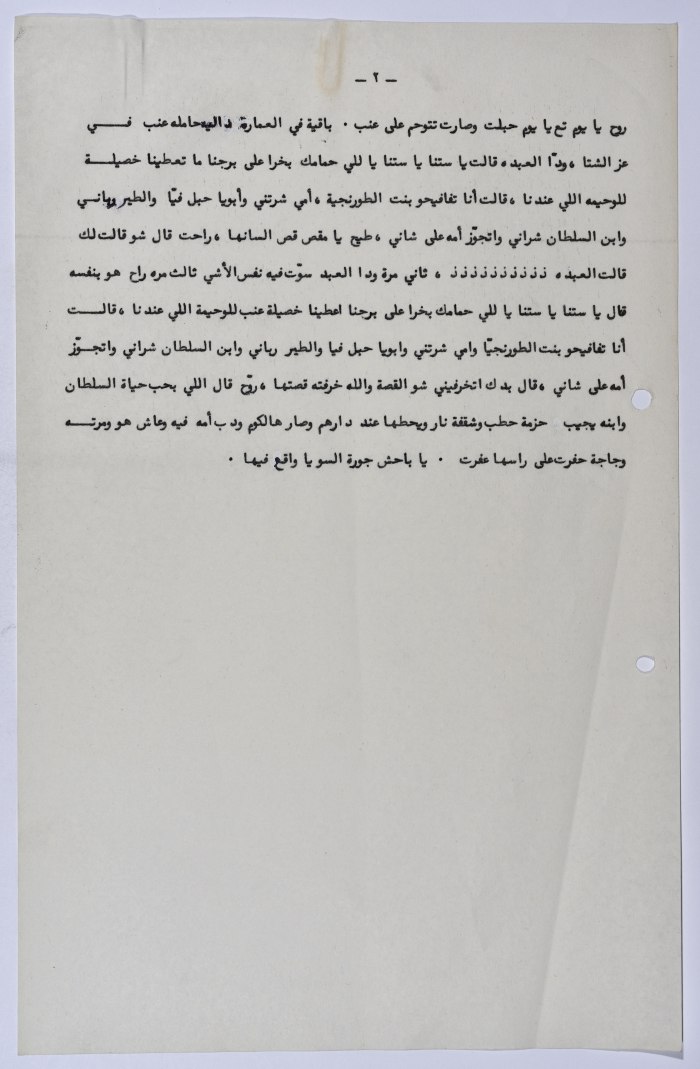 – ٢ –
روح يا يوم تع يا يوم حبلت وصارت تتوحم على عنب . باقية في العمارة دالية حامله عنب فـــي
عز الشتا ، ودّا العبده قالت يا ستنا يا ستنا يا للي حمامك بخرا على برجنا ما تعطينا خصيلــة
للوحيمه اللي عندنا ، قالت أنا تفافيحو بنت الطورنجية ، أمي شرتني وأبويا حبل فيّا والطير رباني
وابن السلطان شراني واتجوّز أمه على شاني ، طيح يا مقص قص السانها ، راحت قال شو قالت لك
قالت العبده ذذذذذذذذذذ ، ثاني مرة ودا العبد سوّت فيه نفس الأشي ثالث مره راح هو بنفسه
قال يا ستنا يا ستنا يا للي حمامك بخرا على برجنا اعطينا خصيلة عنب للوحيمة اللي عندنا ، قالــت
أنا تفافيحو بنت الطورنجيّا وامي شرتني وابويا حبل فيا والطير رباني وابن السلطان شراني واتجــوّز
أمه على شاني ، قال بدك اتخرفيني شو القصة والله خرفته قصتها ، روّح قال اللي بحب حياة السلطان
وابنه يجيب حزمة حطب وشقفة نار ويحطها عند دارهم وصار هالكوم ودب أمه فيه وعاش هو ومرتــه
وجاجة حفرت على راسها عفرت . يا باحش جورة السو يا واقع فيها .